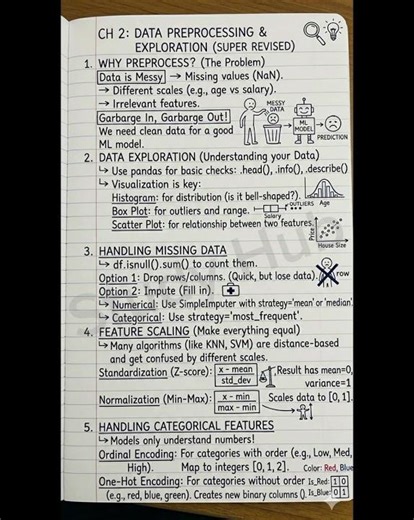 CH 2: DATA PREPROCESSING &
EXPLORATION (SUPER REVISED)
1. WHY PREPROCESS? (The Problem)
Data is Messy → Missing values (NaN).
→ Different scales (e.g., age vs salary).
→ Irrelevant features.
Garbage In, Garbage Out!
We need clean data for a good
ML model.
MESSY
DATA
ML
MODEL
PREDICTION
2. DATA EXPLORATION (Understanding your Data)
↳ Use pandas for basic checks: .head(), .info(), .describe()
↳ Visualization is key:
Histogram: for distribution (is it bell-shaped?).
Age
Box Plot: for outliers and range.
OUTLIERS
Salary
Scatter Plot: for relationship between two features.
Price
House Size
3. HANDLING MISSING DATA
↳ df.isnull().sum() to count them.
Option 1: Drop rows/columns. (Quick, but lose data).
row
Option 2: Impute (Fill in).
↳ Numerical: Use SimpleImputer with strategy='mean' or 'median'.
↳ Categorical: Use strategy='most_frequent'.
4. FEATURE SCALING (Make everything equal)
↳ Many algorithms (like KNN, SVM) are distance-based
and get confused by different scales.
Standardization (Z-score): x - mean
std_dev
Result has mean=0,
variance=1
Normalization (Min-Max): x - min
max - min
Scales data to [0, 1].
5. HANDLING CATEGORICAL FEATURES
↳ Models only understand numbers!
Ordinal Encoding: For categories with order (e.g., Low, Med,
High). Map to integers [0, 1, 2]. Color: Red, Blue
One-Hot Encoding: For categories without order Is_Red: 1 0
(e.g., red, blue, green). Creates new binary columns (). Is_Blue: 0 1